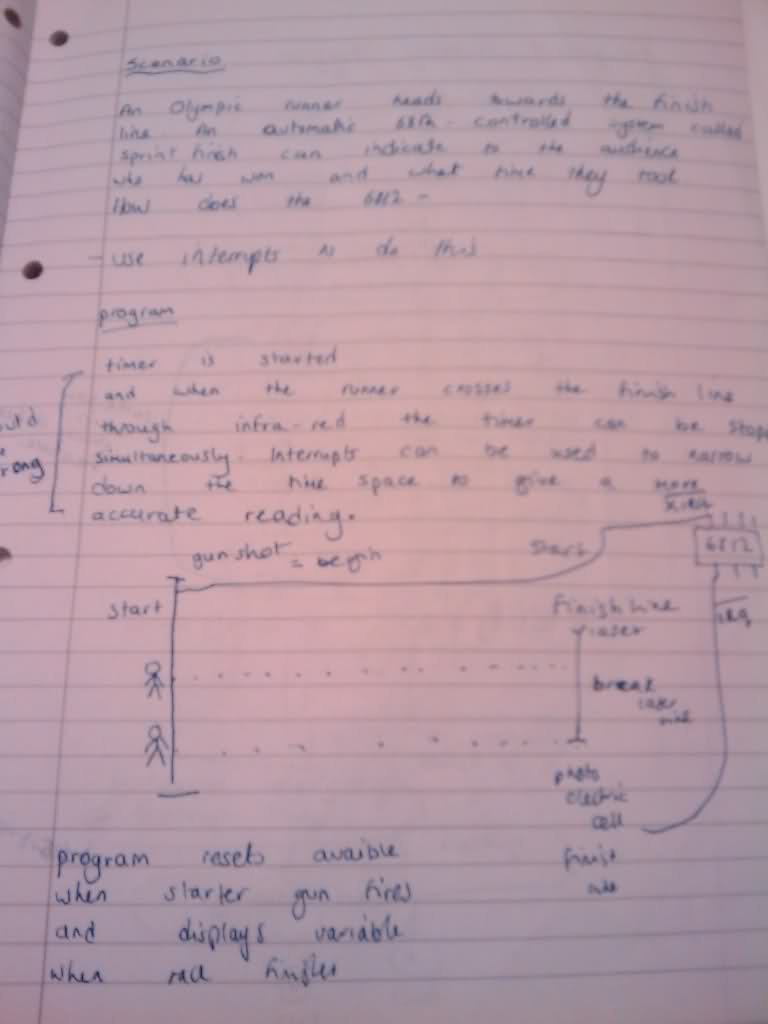 Scenario
An Olympic runner heads towards the finish
line. An automatic 6812 - controlled system called
sprint finish can indicate to the audience
who has won and what time they took
How does the 6812 -
- use interrupts to do this
program
timer is started
and when the runner crosses the finish line
through infra-red the timer can be stop
simultaneously. Interrupts can be used to narrow
down the time space to give a more
accurate reading.
rong
XIRQ
gun shot = begin
start
6812
start
finish line
laser
IRQ
break
laser
photo
electric
cell
program resets avaible
when starter gun fires
and displays variable
when race
finish